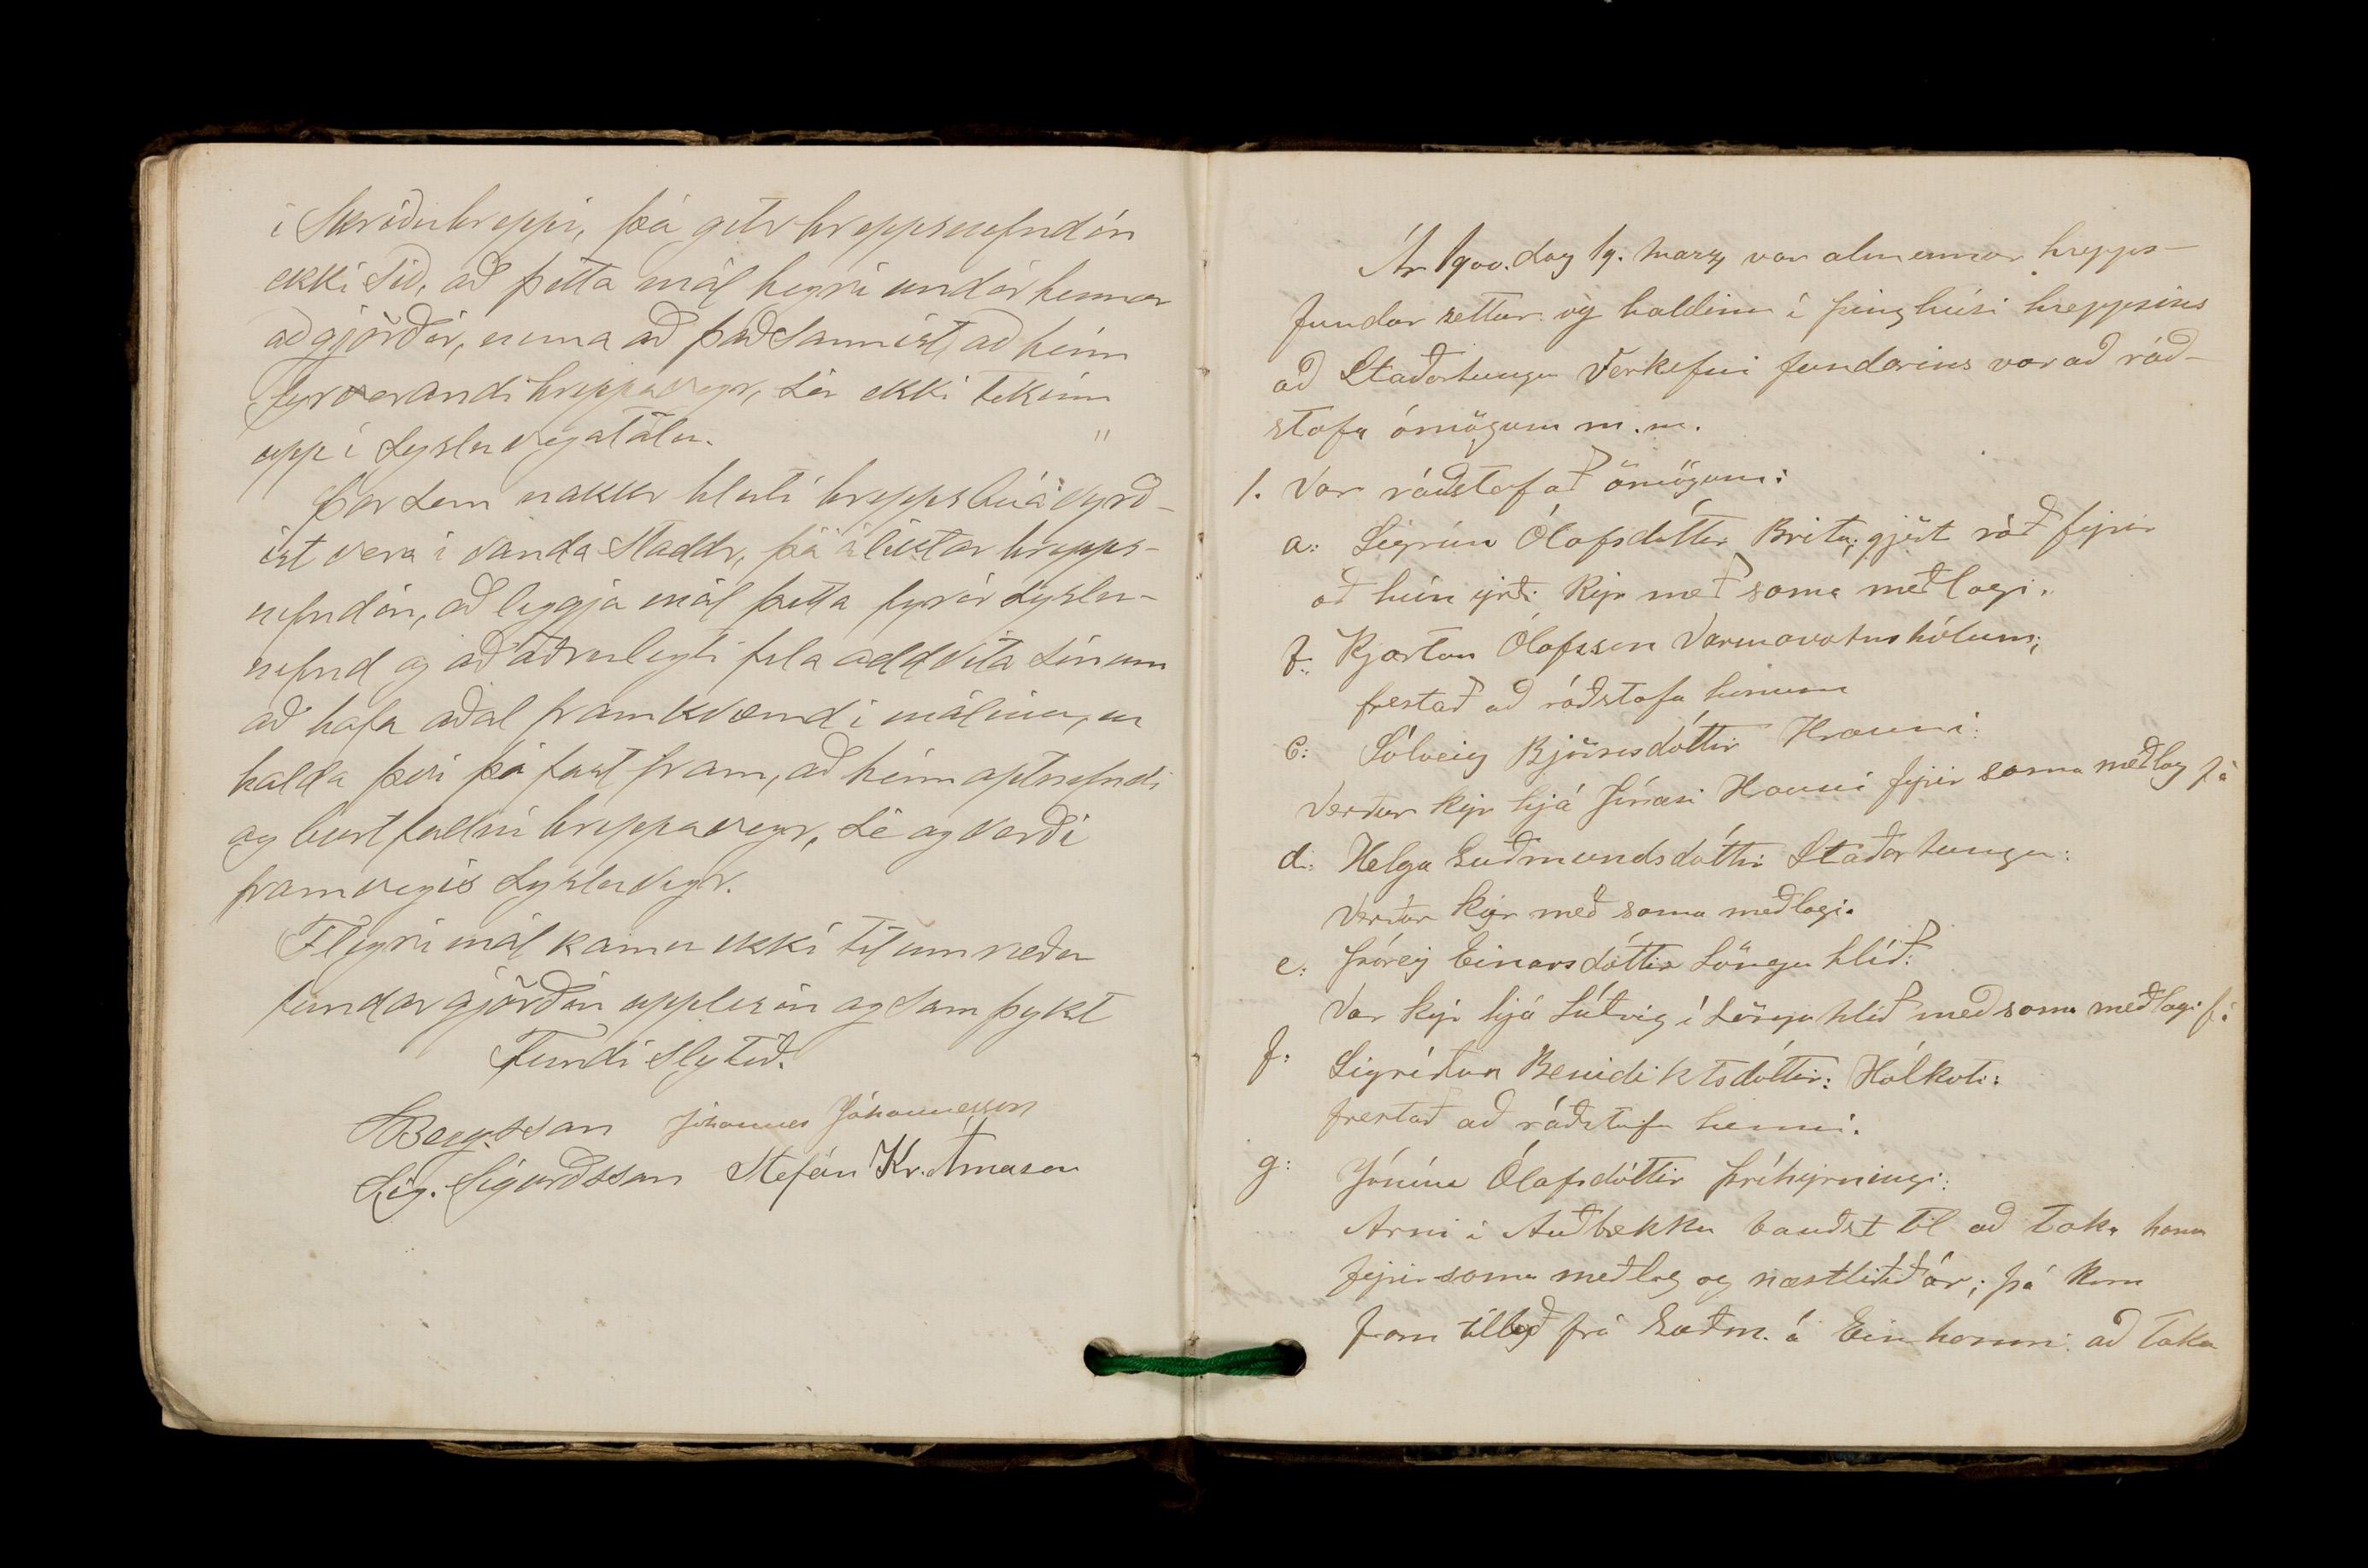 í Skriðuhreppi, þá getr hreppsnefndin
ekki séð, að þetta mál heyri undir hennar
aðgjörðir, nema að það sannist, að hinn
fyrverandi hreppavegr, sér ekki tekinn
upp í sysluvegatölu. "
Þar sem nakkur hluti hreppsbúa virð-
ist vera í vanda staddr, þá ályktar hrepps-
nefndin, að leggja mál þetta fyrir syslu-
nefnd og að aðrulegti fela oddvita sínum
að hafa aðal framkvæmd í málinu, en
halda því þó fast fram, að hinn optnefndi
og burtfallni hreppavegr, sé og verði
framvegis sysluvegr.
Fleyri mál komu ekki til umræðu
fundargjörðin upplesin og samþykt
Fundi slytið.
Bergsson Jóhannes Jóhannesson
Sig. Sigurðsson Stefán Kr. Árnason
Ár 1900. dag 19. marz, var almennur hrepps-
fundur settur og haldinn í þinghúsi hreppsins
að Staðartungu Verkefni fundarins var að ráð-
stafa ómögum m.m.
1. Var ráðstafað ómögum:
a: Sigrún Ólafsdóttir Britu; gjört ráð fyrir
að hún yrði kyr með sama meðlagi.
b: Kjartan Ólafsson Varmavatnshólum;
frestað að ráðstafa honum
c: Sólveig Björnsdóttir Hrauni:
Verður kyr hjá Jónasi Hrauni fyrir sama meðlag já
d: Helga Guðmundsdóttir Staðartungu:
Verður kyr með sama meðlagi.
e: Þórey Einarsdóttir Lönguhlíð:
Var kyr hjá Lúðvig í Lönguhlíð með sama meðlagi já
f: Sigríður Benidiktsdóttir: Hólkoti:
frestað að ráðstafa henni.
g: Jónína Ólafsdóttir Þríhyrningi:
Arni í Auðbrekku bauðst til að taka hana
fyrir sama meðlag og næstliðið ár; þá kom
fram tilboð frá Guðm. á Einhamri að taka